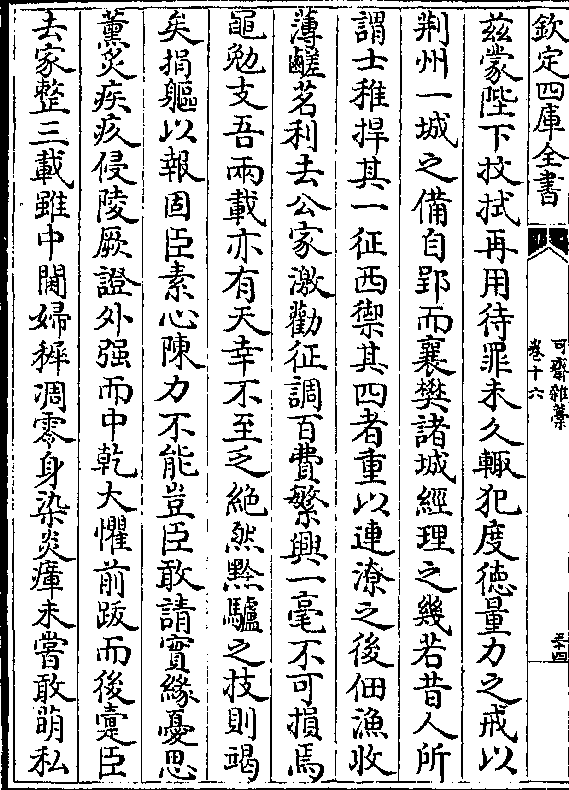 欽定四庫全書
可齋雜藁
卷十六
三十四
兹蒙陛下抆拭再用待罪未久輙犯度徳量力之戒以
荆州一城之備自郢而襄樊諸城經理之幾若昔人所
謂士稚捍其一征西禦其四者重以連潦之後佃漁收
薄鹺茗利去公家激勸征調百費繁興一毫不可損焉
黽勉支吾兩載亦有天幸不至乏絶然黔驢之技則竭
矣捐軀以報固臣素心陳力不能豈臣敢請實緣憂思
薰炙疾疢侵陵厥證外强而中乾大懼前跋而後疐臣
去家整三載雖中閫婦稺凋零身染炎瘴未嘗敢萌私